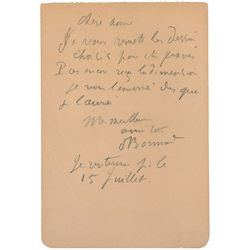 chère amie
Je vous remets les dessins
choisis pour être gravés
Pas encore reçu la dimension
je vous l'enverrai dès que
je l'aurai
Mes meilleures
amitiés
Bonnard
Je retourne p. le
15 juillet.